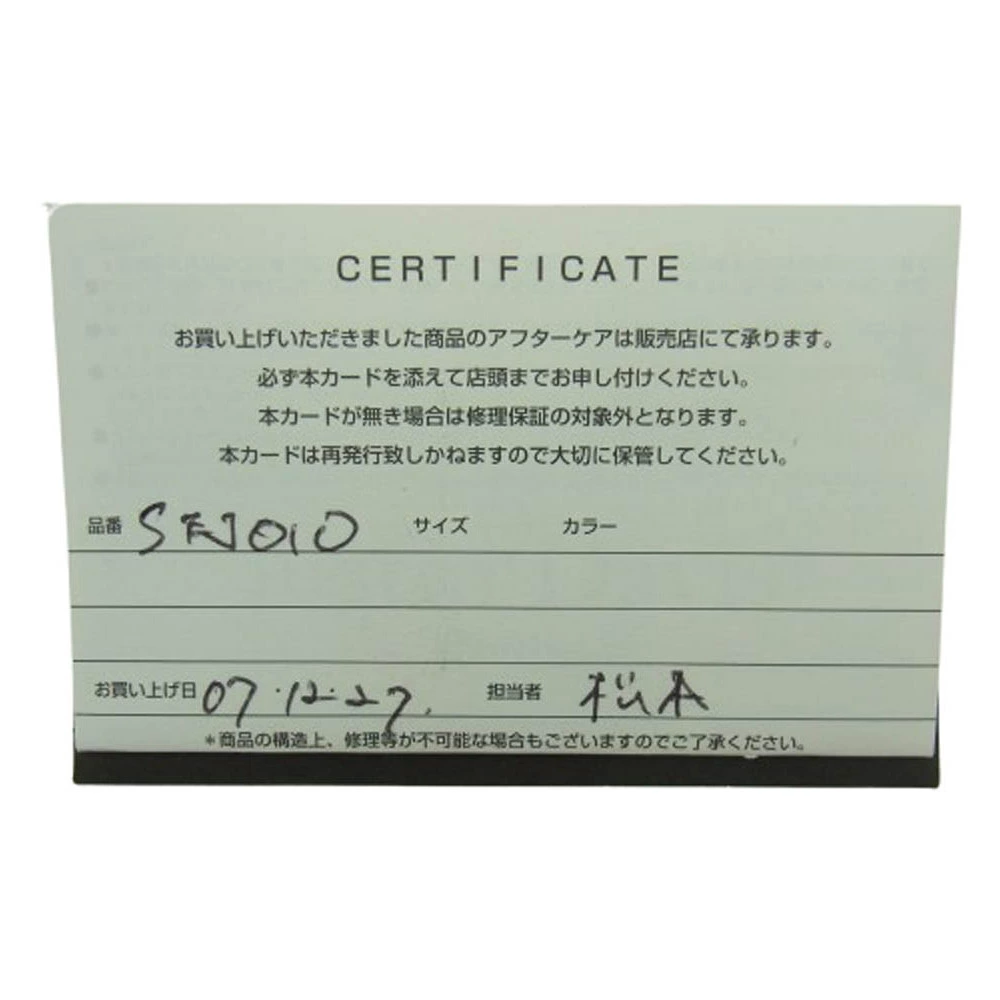 CERTIFICATE
お買い上げいただきました商品のアフターケアは販売店にて承ります。
必ず本カードを添えて店頭までお申し付けください。
本カードが無き場合は修理保証の対象外となります。
本カードは再発行致しかねますので大切に保管してください。
品番 SEJ010 サイズ カラー
お買い上げ日 07.12.27. 担当者 松本
*商品の構造上、修理等が不可能な場合もございますのでご了承ください。